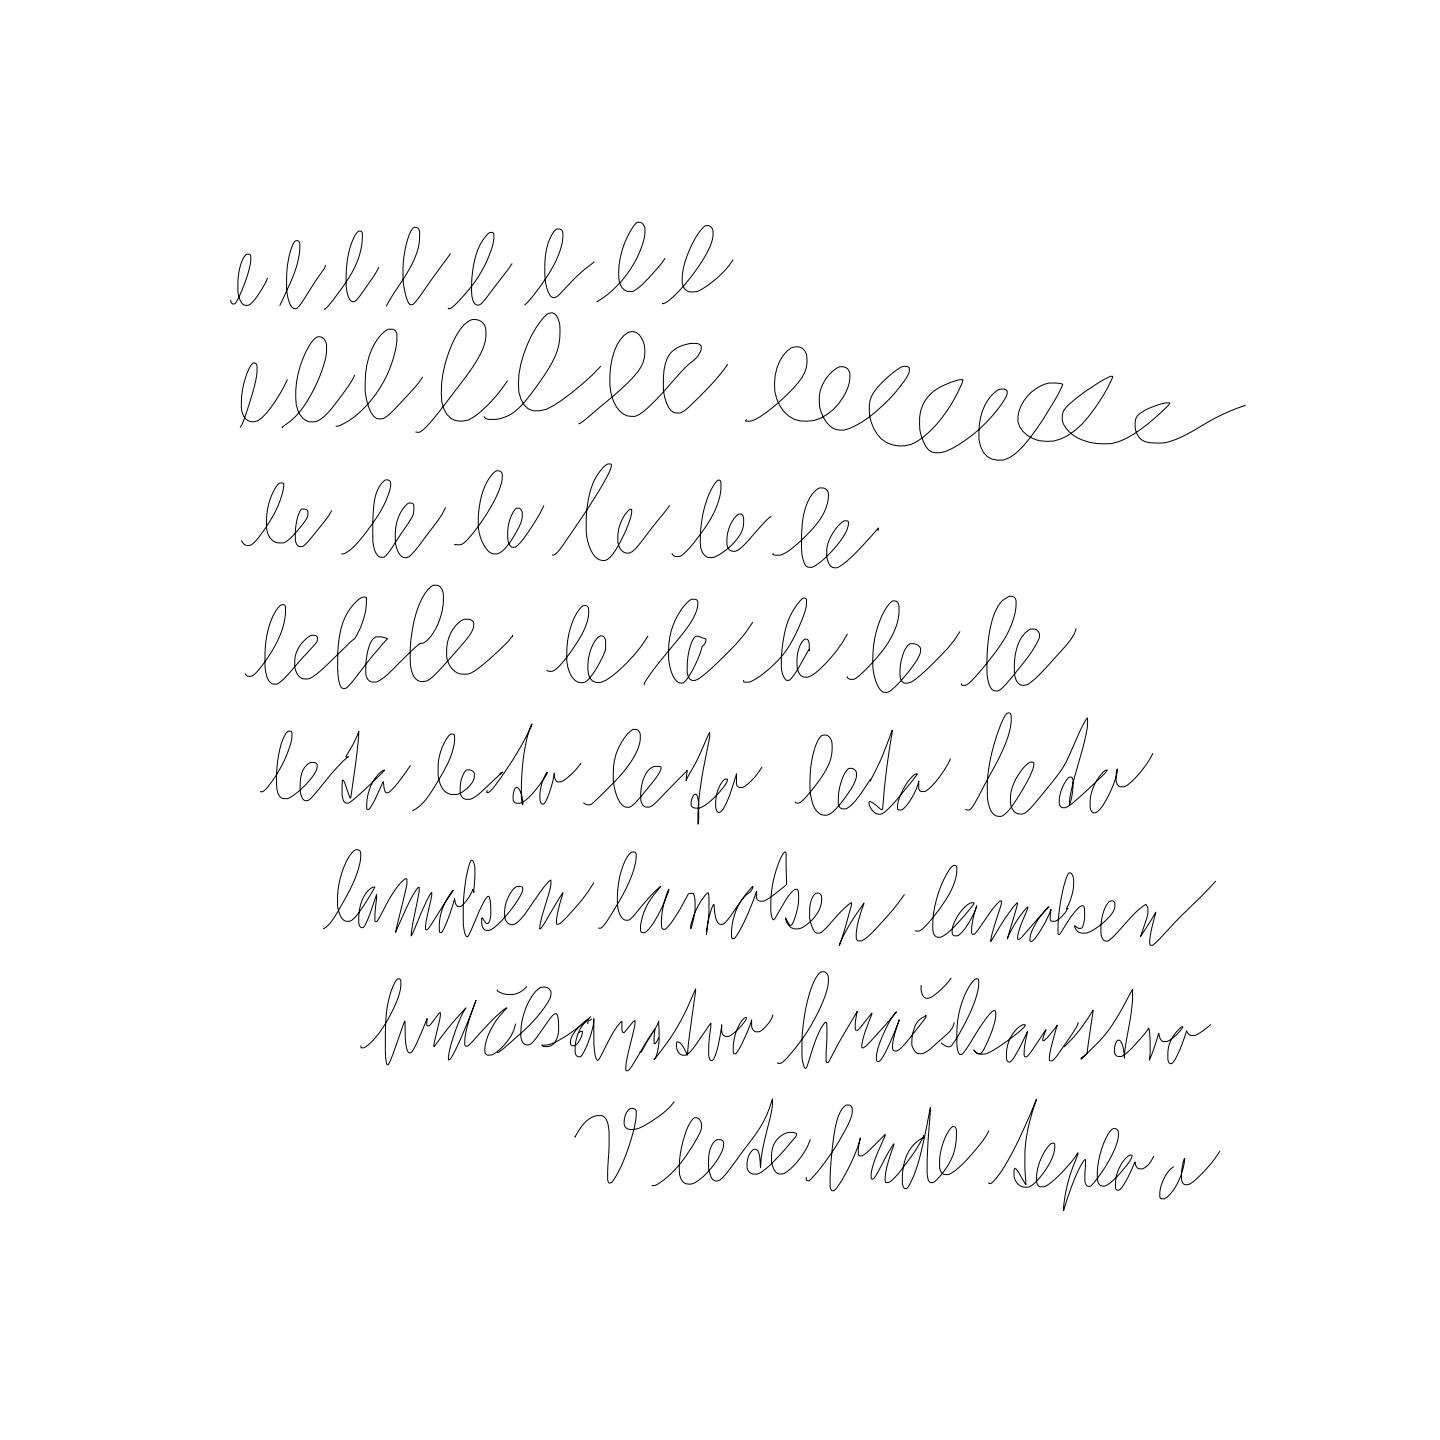 l l l l l l l l
l l l l l l l llllllll
le le le le le le
lelele le le le le le
leto leto leto leto leto
lamoken lamoken lamoken
hračkarstvo hračkarstvo
V lete bude teplo a